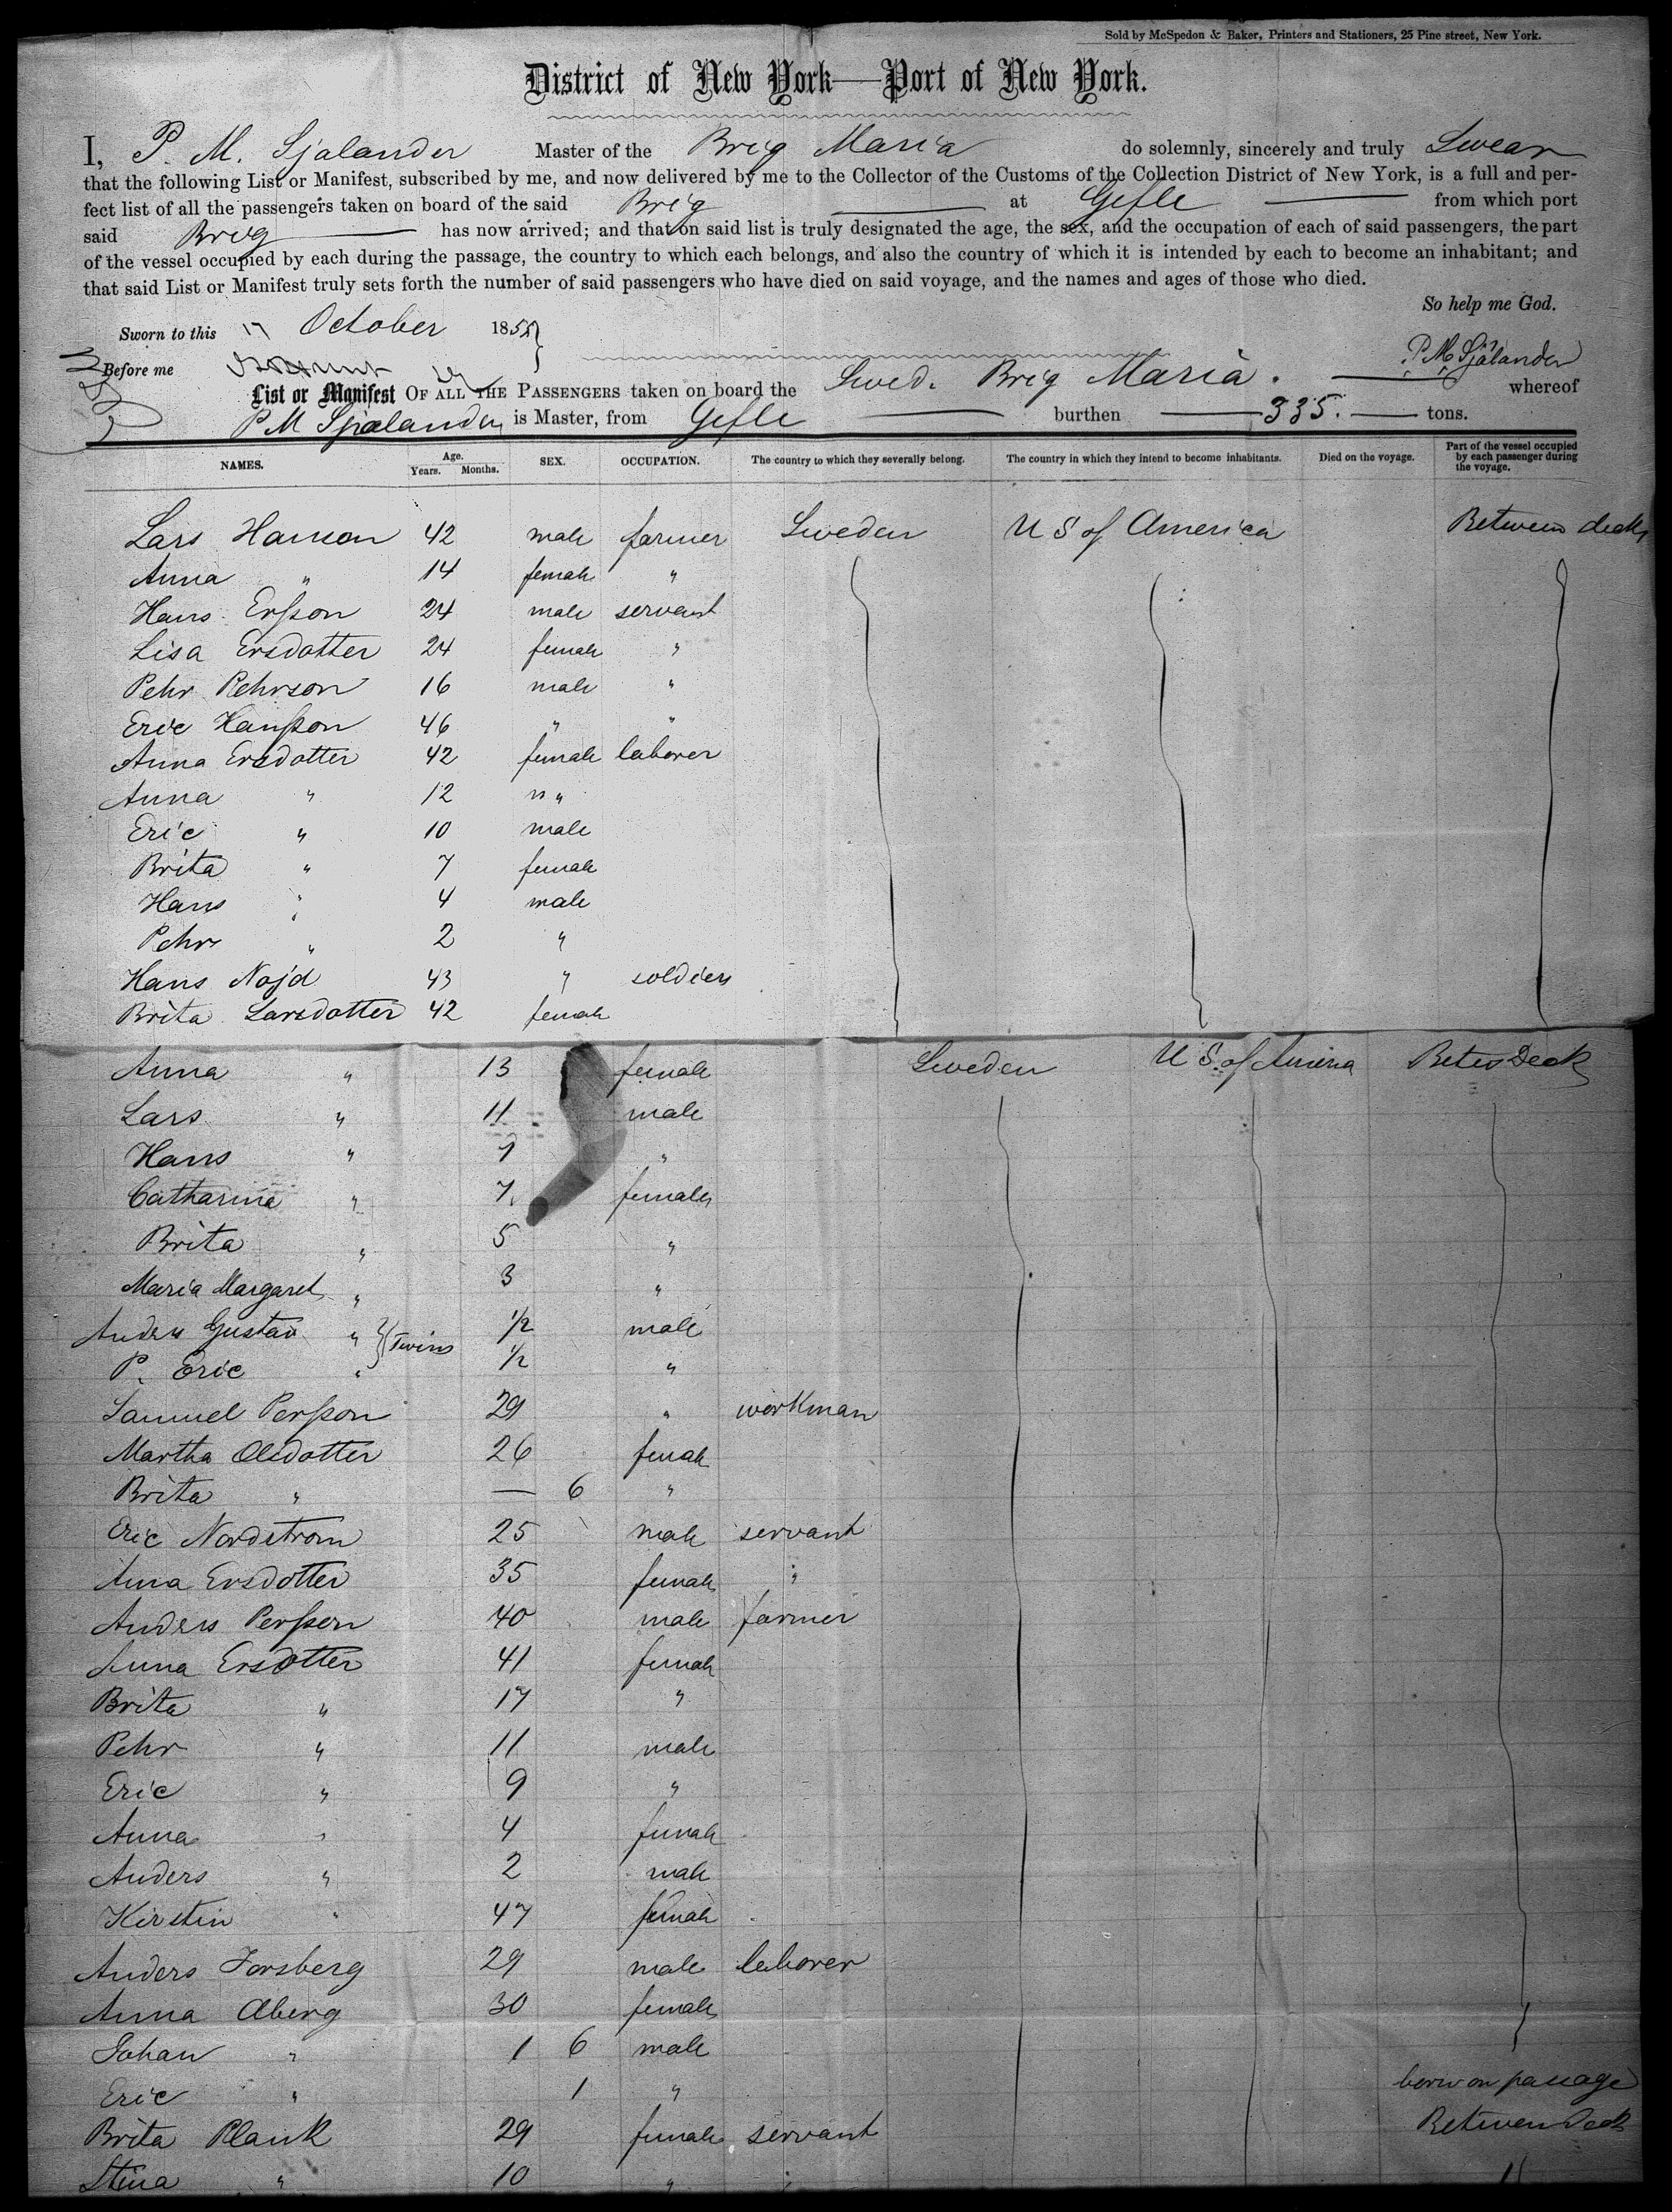 Sold by McSpedon & Baker, Printers and Stationers, 25 Pine street, New York.
District of New York—Port of New York.
I, P. M. Sjalander Master of the Brig Maria do solemnly, sincerely and truly Swear
that the following List or Manifest, subscribed by me, and now delivered by me to the Collector of the Customs of the Collection District of New York, is a full and per-
fect list of all the passengers taken on board of the said Brig at Gefle from which port
said Brig has now arrived; and that on said list is truly designated the age, the sex, and the occupation of each of said passengers, the part
of the vessel occupied by each during the passage, the country to which each belongs, and also the country of which it is intended by each to become an inhabitant; and
that said List or Manifest truly sets forth the number of said passengers who have died on said voyage, and the names and ages of those who died.
So help me God.
Sworn to this 17 October 185
Before me P. M. Själander
List or Manifest OF ALL THE PASSENGERS taken on board the Swed. Brig Maria. whereof
P M Sjalander is Master, from Gefle burthen 335. tons.
NAMES. Age. Years. Months. SEX. OCCUPATION. The country to which they severally belong. The country in which they intend to become inhabitants. Died on the voyage. Part of the vessel occupied by each passenger during the voyage.
Lars Hanson 42 male farmer Sweden U S of America Between decks
Anna " 14 female "
Hans Ersson 24 male servant
Lisa Ersdotter 24 female "
Pehr Pehrson 16 male "
Eric Hansson 46 " "
Anna Ersdotter 42 female laborer
Anna " 12 "
Eric " 10 male
Brita " 7 female
Hans " 4 male
Pehr " 2 "
Hans Nojd 43 " soldier
Brita Larsdotter 42 female
Anna " 13 female Sweden U S. of America Betw Deck
Lars " 11 male
Hans " 9 "
Catharina " 7 female
Brita " 5 "
Maria Margaret " 3 "
Anders Gustav " } Twins 1/2 male
P. Eric " 1/2 "
Samuel Persson 29 " workman
Martha Olsdotter 26 female
Brita " — 6 "
Eric Nordstrom 25 male servant
Anna Ersdotter 35 female "
Anders Persson 40 male farmer
Anna Ersdotter 41 female
Brita " 17 "
Pehr " 11 male
Eric " 9 "
Anna " 4 female
Anders " 2 male
Kirstin " 47 female
Anders Forsberg 29 male laborer
Anna Aberg 30 female
Johan " 1 6 male
Eric " 1 " born on passage
Brita Plank 29 female servant Between Deck
Stina " 10 " " "